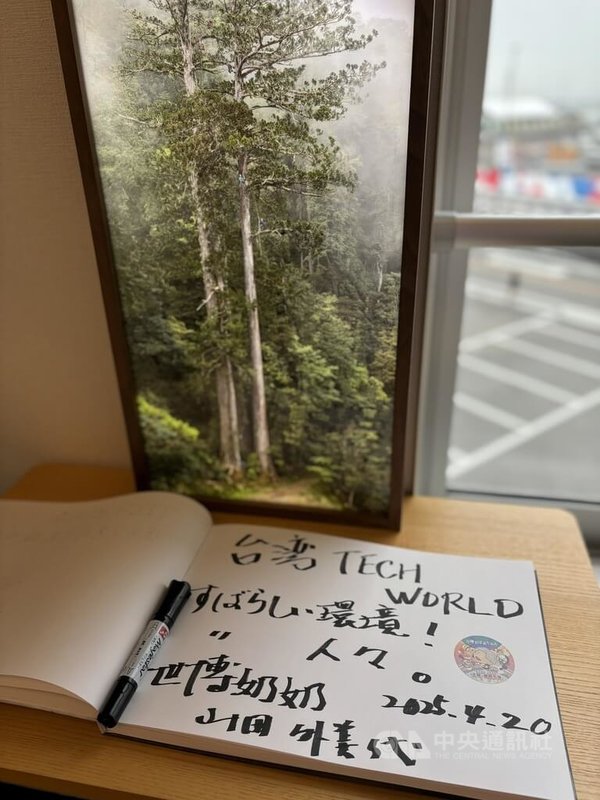 台湾 TECH
WORLD
すばらしい環境！
〃 人々。
世博奶奶
2025.4.20
山田外美代
CNA 中央通訊社
THE CENTRAL NEWS AGENCY